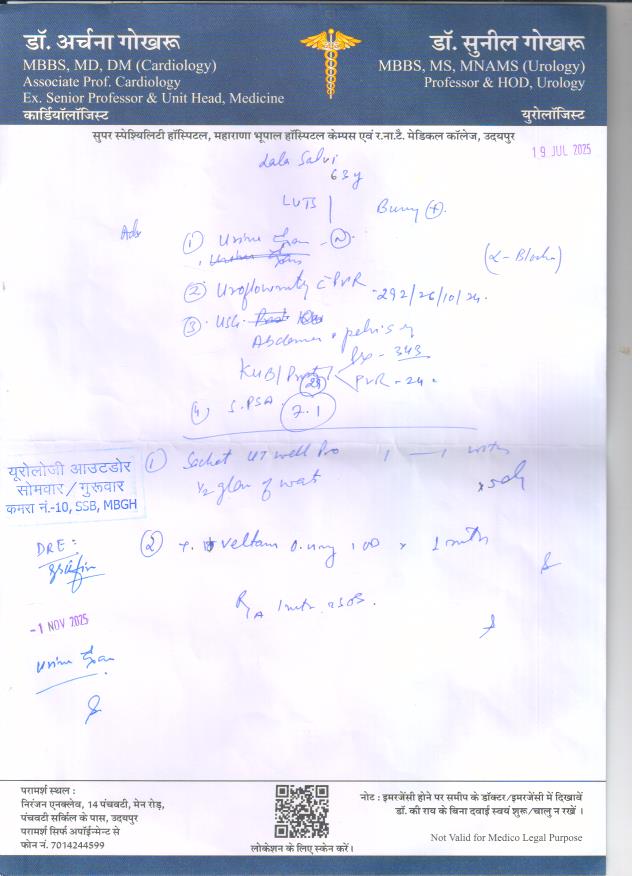 डॉ. अर्चना गोखरू
MBBS, MD, DM (Cardiology)
Associate Prof. Cardiology
Ex. Senior Professor & Unit Head, Medicine
कार्डियॉलॉजिस्ट
डॉ. सुनील गोखरू
MBBS, MS, MNAMS (Urology)
Professor & HOD, Urology
यूरोलॉजिस्ट
सुपर स्पेश्यिलिटी हॉस्पिटल, महाराणा भूपाल हॉस्पिटल केम्पस एवं र.ना.टै. मेडिकल कॉलेज, उदयपुर
19 JUL 2025
Lala Salvi
63y
LUTS
Adv
① Urine Exam - N
(α-Blocker)
② Uroflowmetry c̄ PVR - 292/26/10/24.
③ USG
Abdomen + pelvis
KUB/Prost
343
28
PVR - 24
④ S.PSA. 7.1
① Sachet UT well Pro 1 — 1 with
½ glass of water
यूरोलॉजी आउटडोर
सोमवार / गुरूवार
कमरा नं.-10, SSB, MBGH
② T. Veltam 0.4mg 1 OD x 1 mth
DRE:
-1 NOV 2025
Urine Exam
परामर्श स्थल :
निरंजन एनक्लेव, 14 पंचवटी, मेन रोड़,
पंचवटी सर्किल के पास, उदयपुर
परामर्श सिर्फ अपॉईन्मेन्ट से
फोन नं. 7014244599
लोकेशन के लिए स्केन करें।
नोट : इमरजेंसी होने पर समीप के डॉक्टर/इमरजेंसी में दिखावें
डॉ. की राय के बिना दवाई स्वयं शुरू/चालु न रखें ।
Not Valid for Medico Legal Purpose